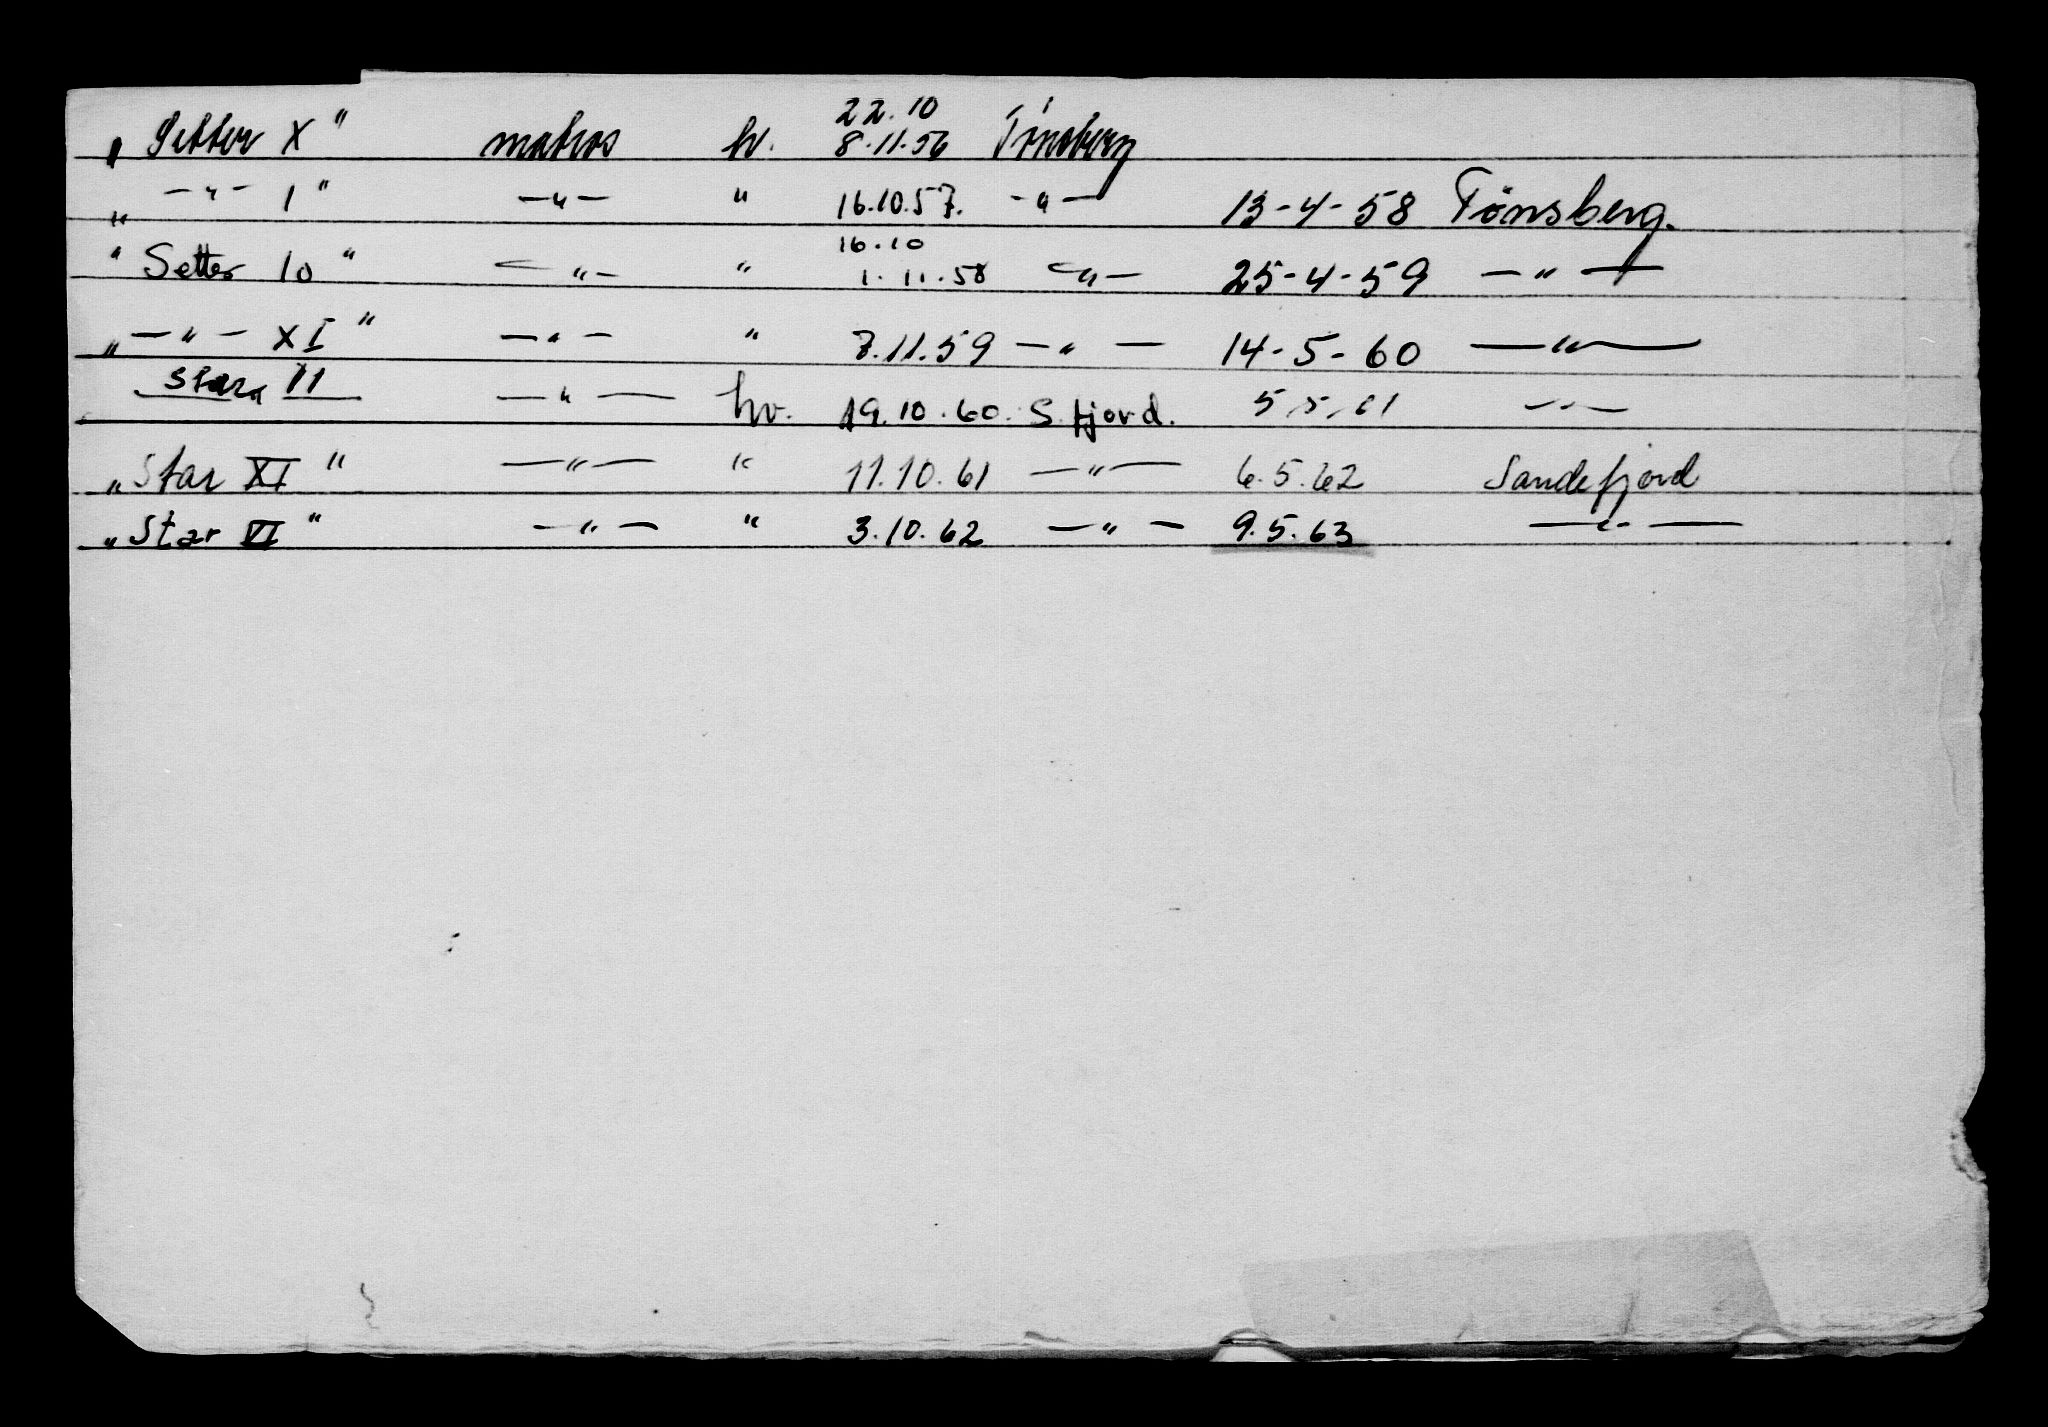 22.10
„ Setter X " matros hv. 8.11.56 Tönsberg
„ —"— 1 " —"— " 16.10.57. —"— 13-4-58 Tönsberg.
16.10
" Setter 10 " —"— " 1.11.58 —"— 25-4-59 —"—
„ —"— XI " —"— " 7.11.59 —"— 14-5-60 —"—
11 —"— hv. 19.10.60. S.fjord. 5.5.61 —"—
„ Star XI " —"— " 11.10.61 —"— 6.5.62 Sandefjord
„ Star VI " —"— " 3.10.62 —"— 9.5.63 —"—